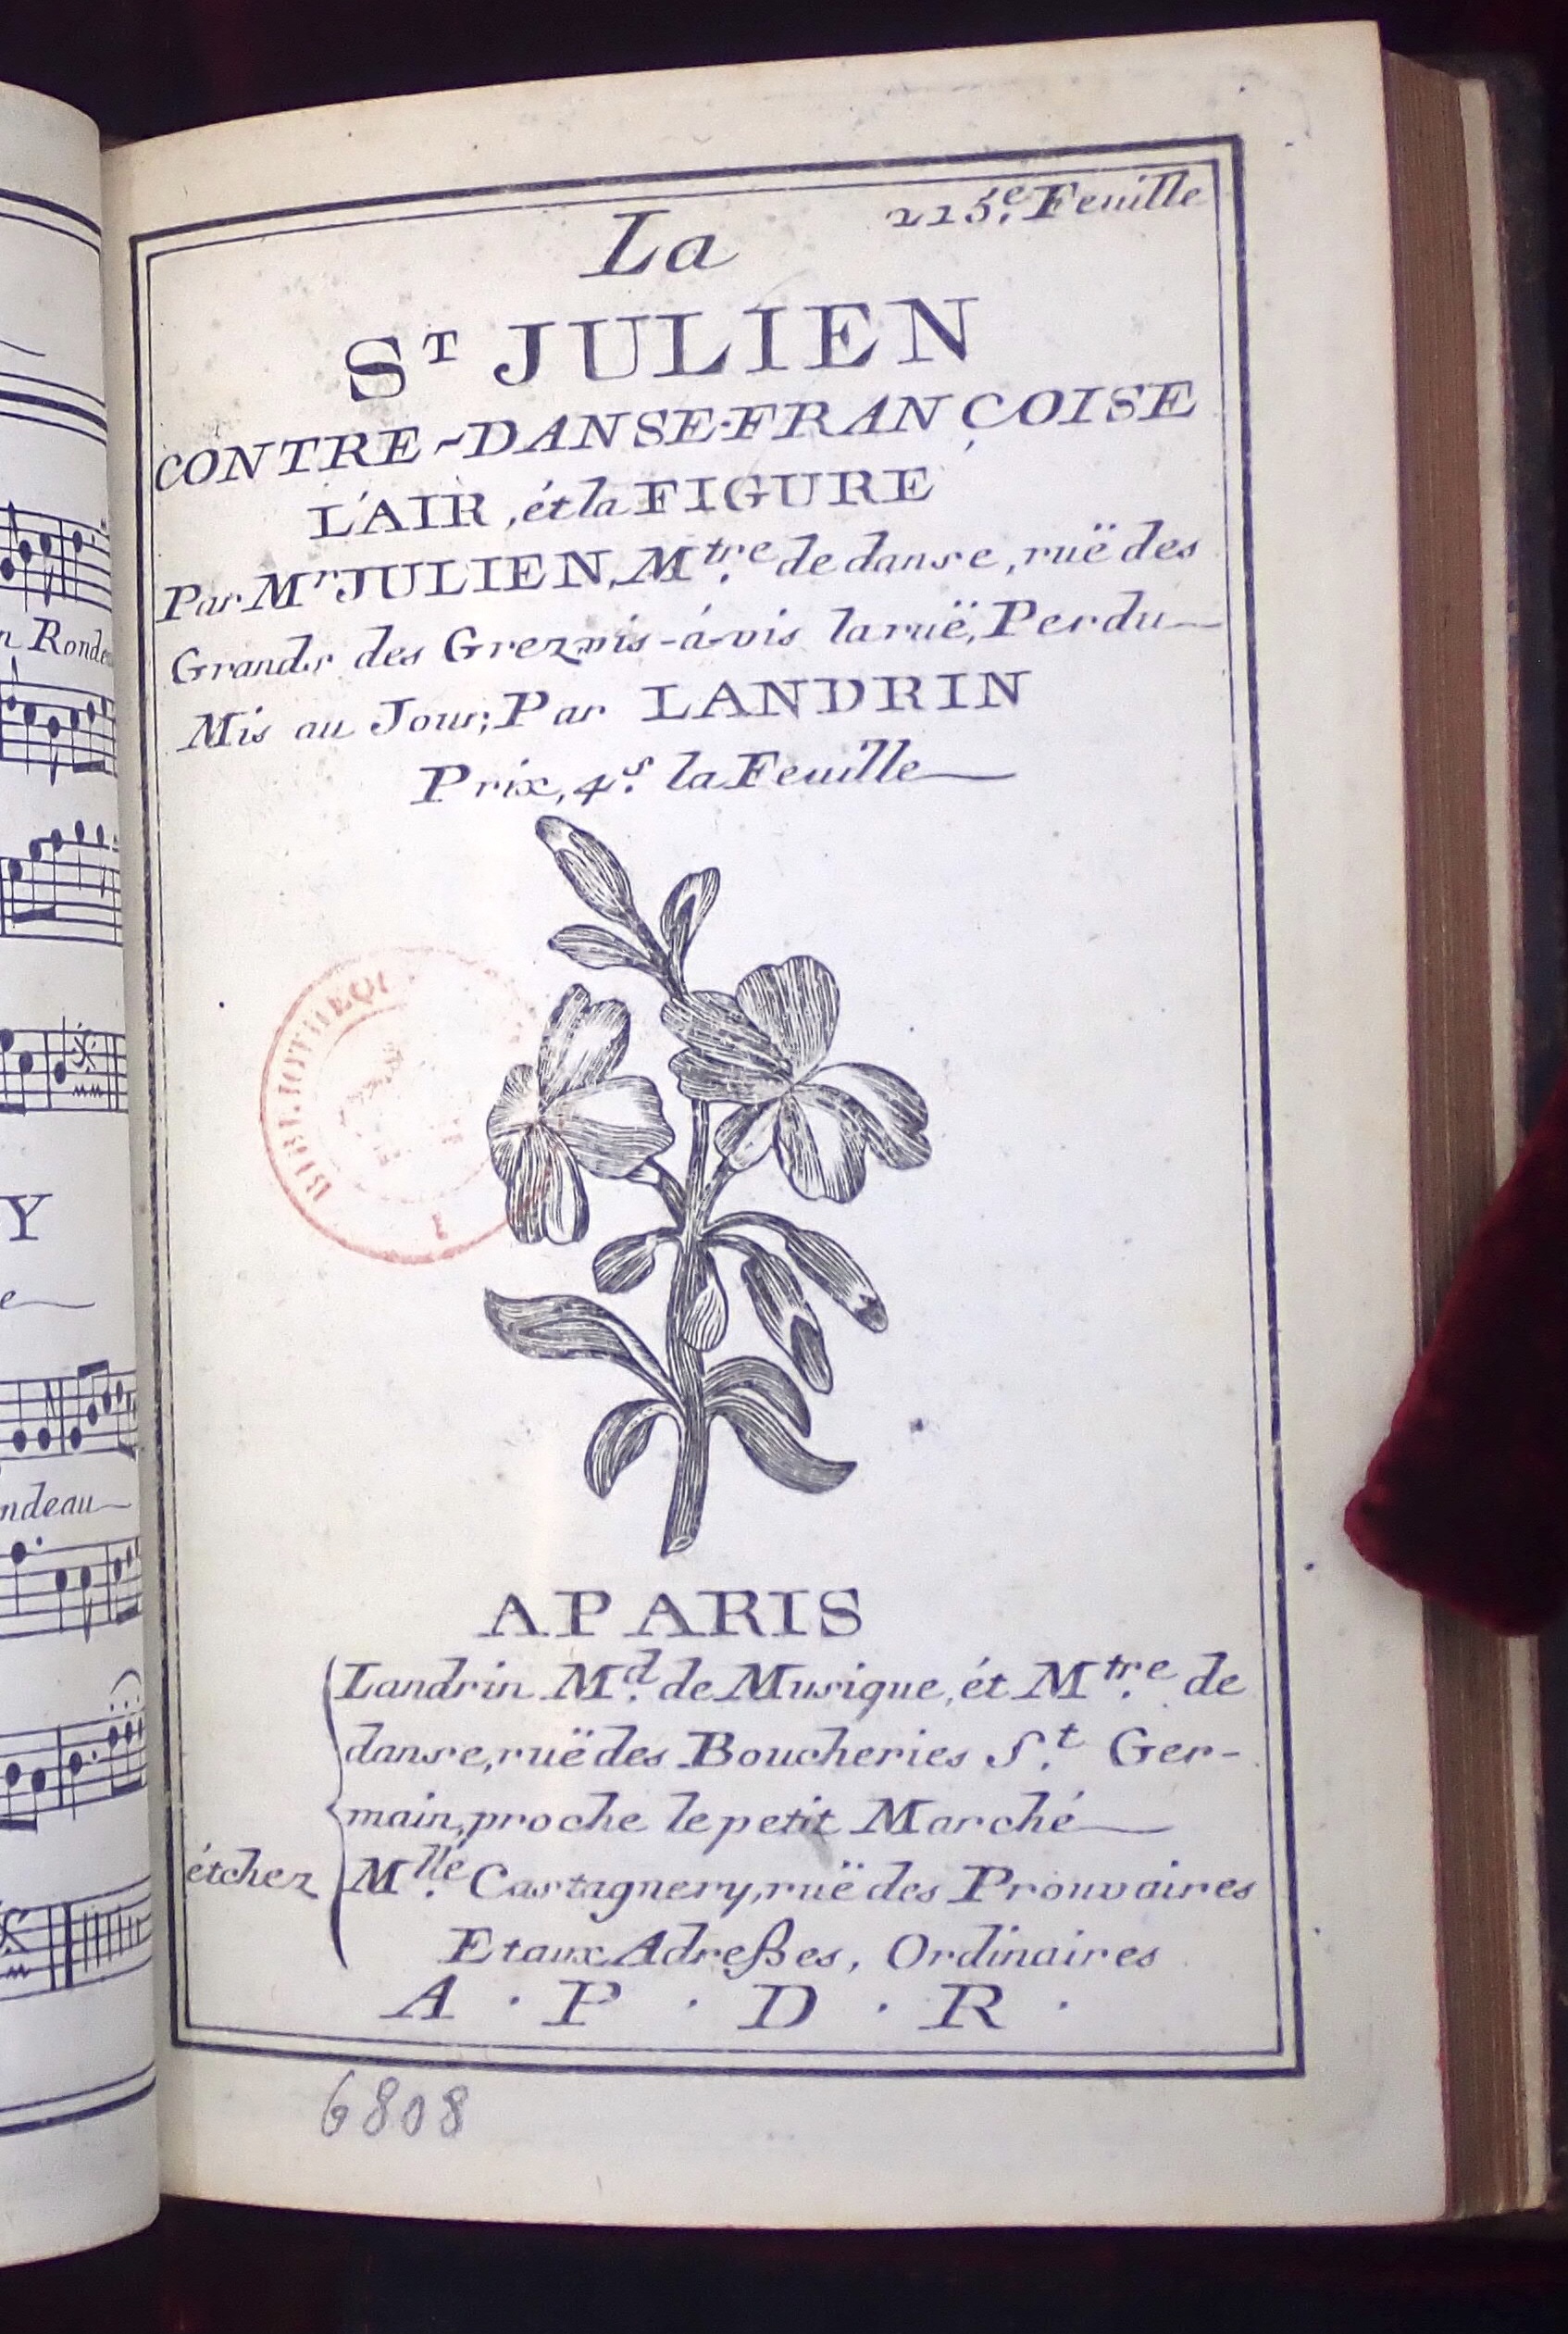 215.e Feuille
La
ST JULIEN
CONTRE-DANSE-FRANÇOISE
L'AIR, ét la FIGURE
Par Mr JULIEN, M.tre de danse, ruë des
Grands des Grez vis-á-vis la ruë, Perdu
Mis au Jour; Par LANDRIN
Prix, 4.s la Feuille
BIBLIOTHEQU
A PARIS
Landrin M.d de Musique, ét M.tre de
danse, ruë des Boucheries S.t Ger-
main, proche le petit Marché
ét chez M.lle Castagnery, ruë des Prouvaires
Et aux Adreßes, Ordinaires
A . P . D . R .
6808
n Ronde
Y
e
ndeau